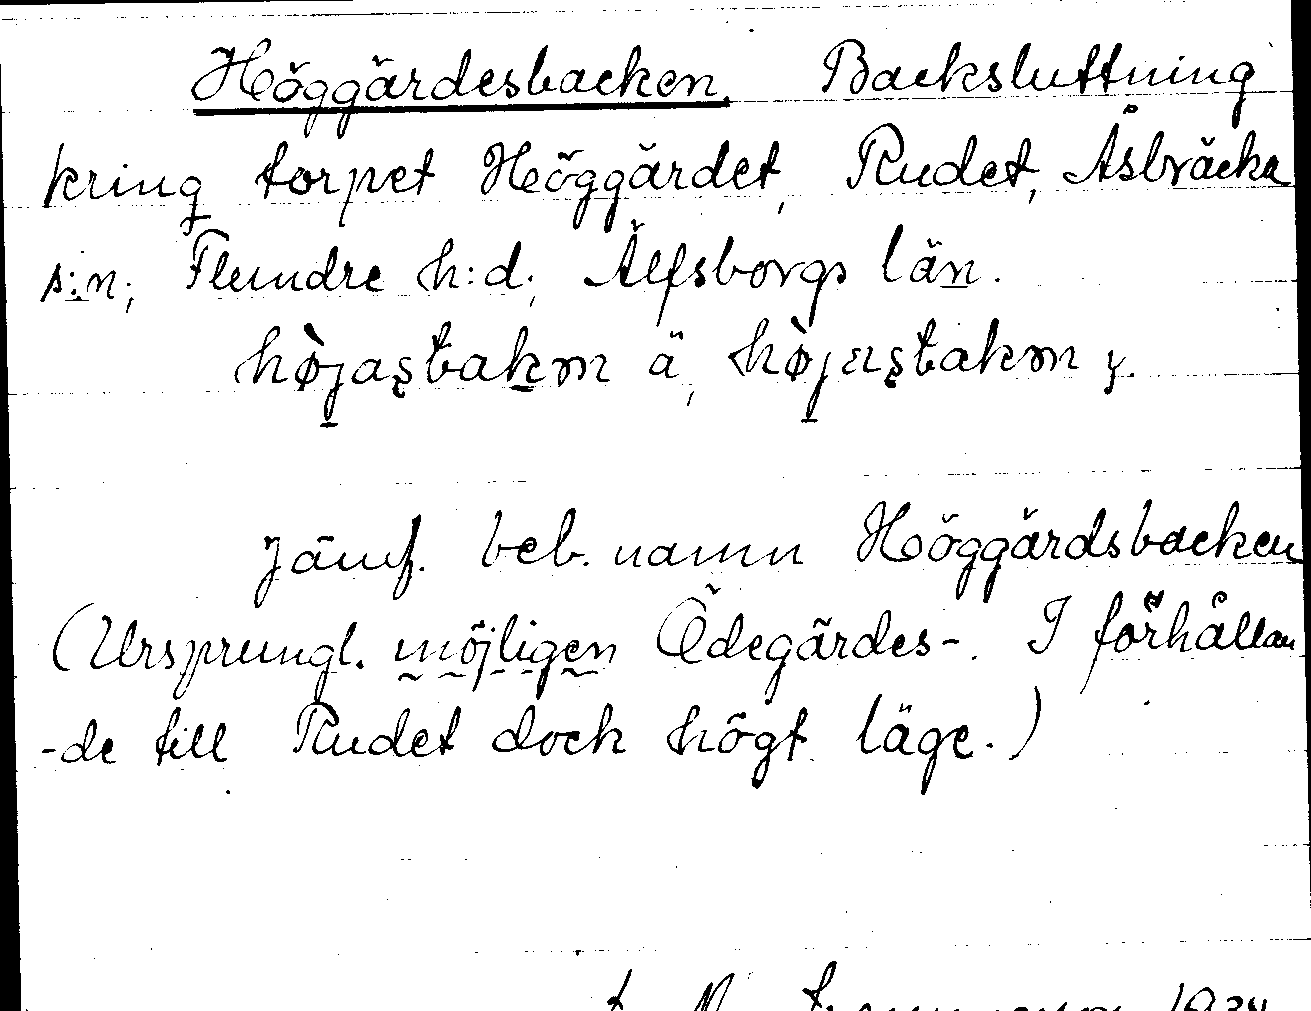 Höggärdesbacken. Backsluttning
kring torpet Höggärdet, Rudet, Åsbräcka
s:n, Flundre h:d, Älfsborgs län.
ä, y.
Jämf. beb. namn Höggärdsbacken
(Ursprungl. möjligen Ödegärdes-. I förhållan
-de till Rudet dock högt läge.)